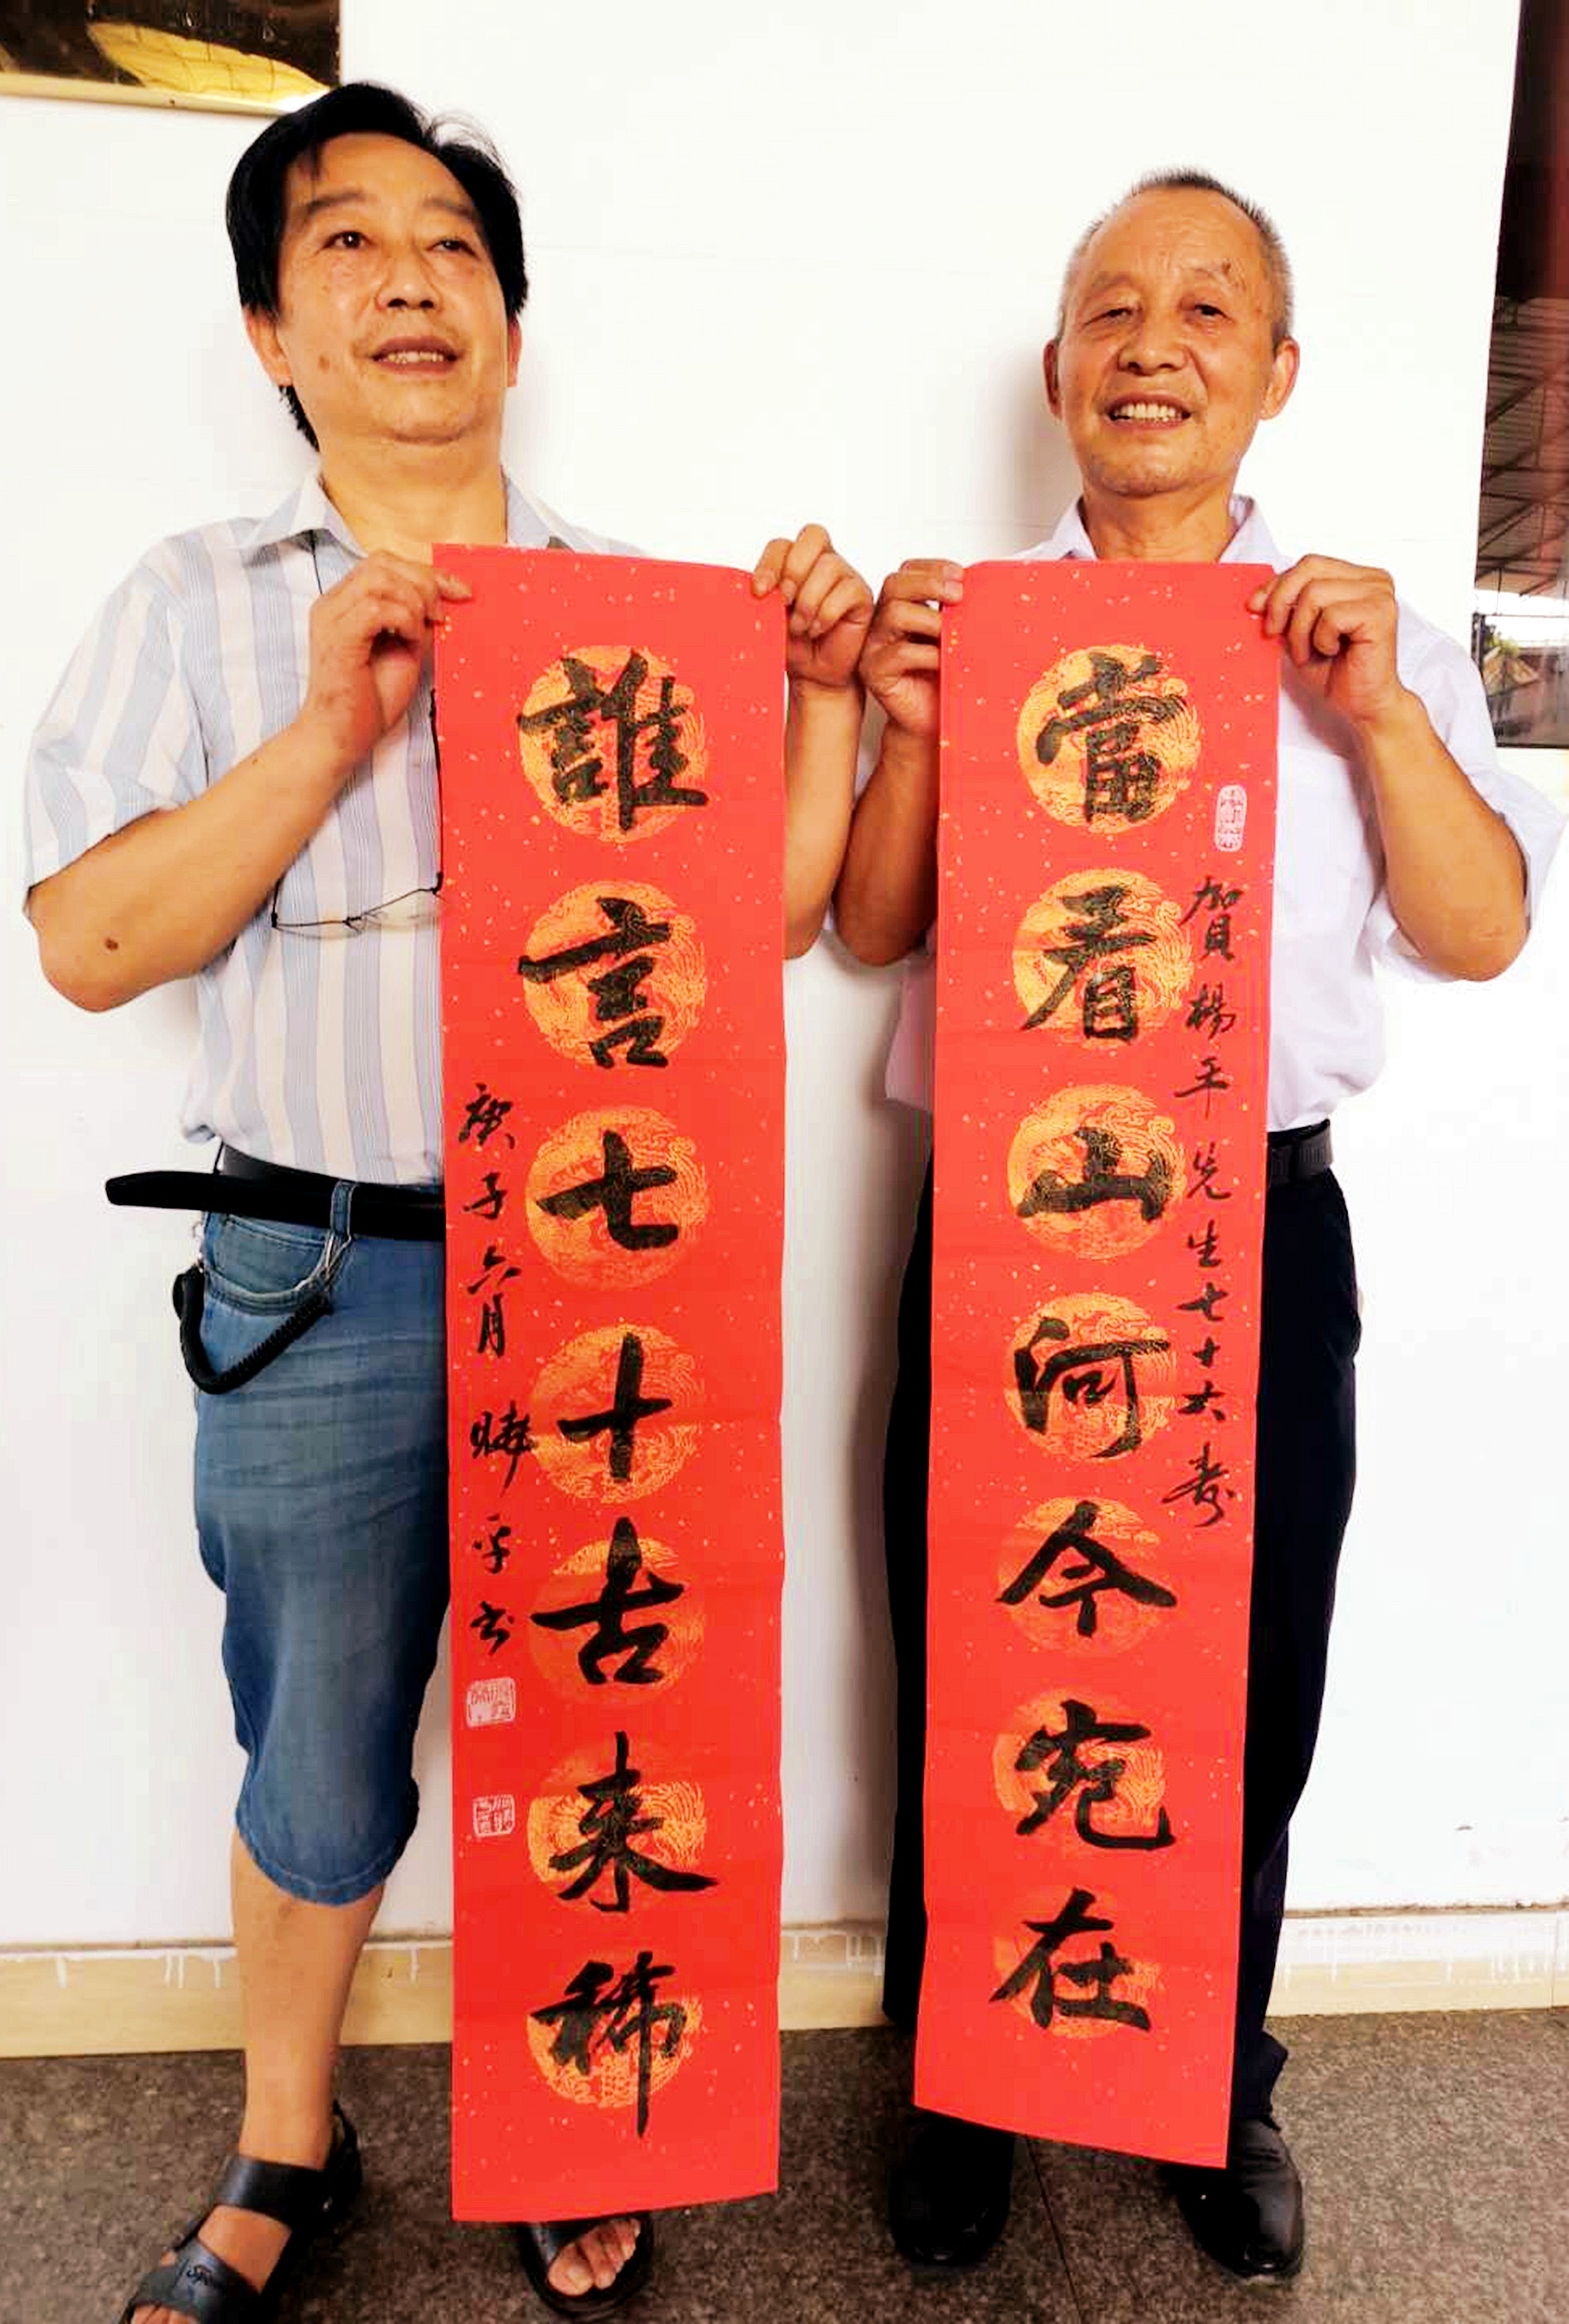 賀楊平先生七十大壽
當看山河今宛在
誰言七十古来稀
庚子六月
平书